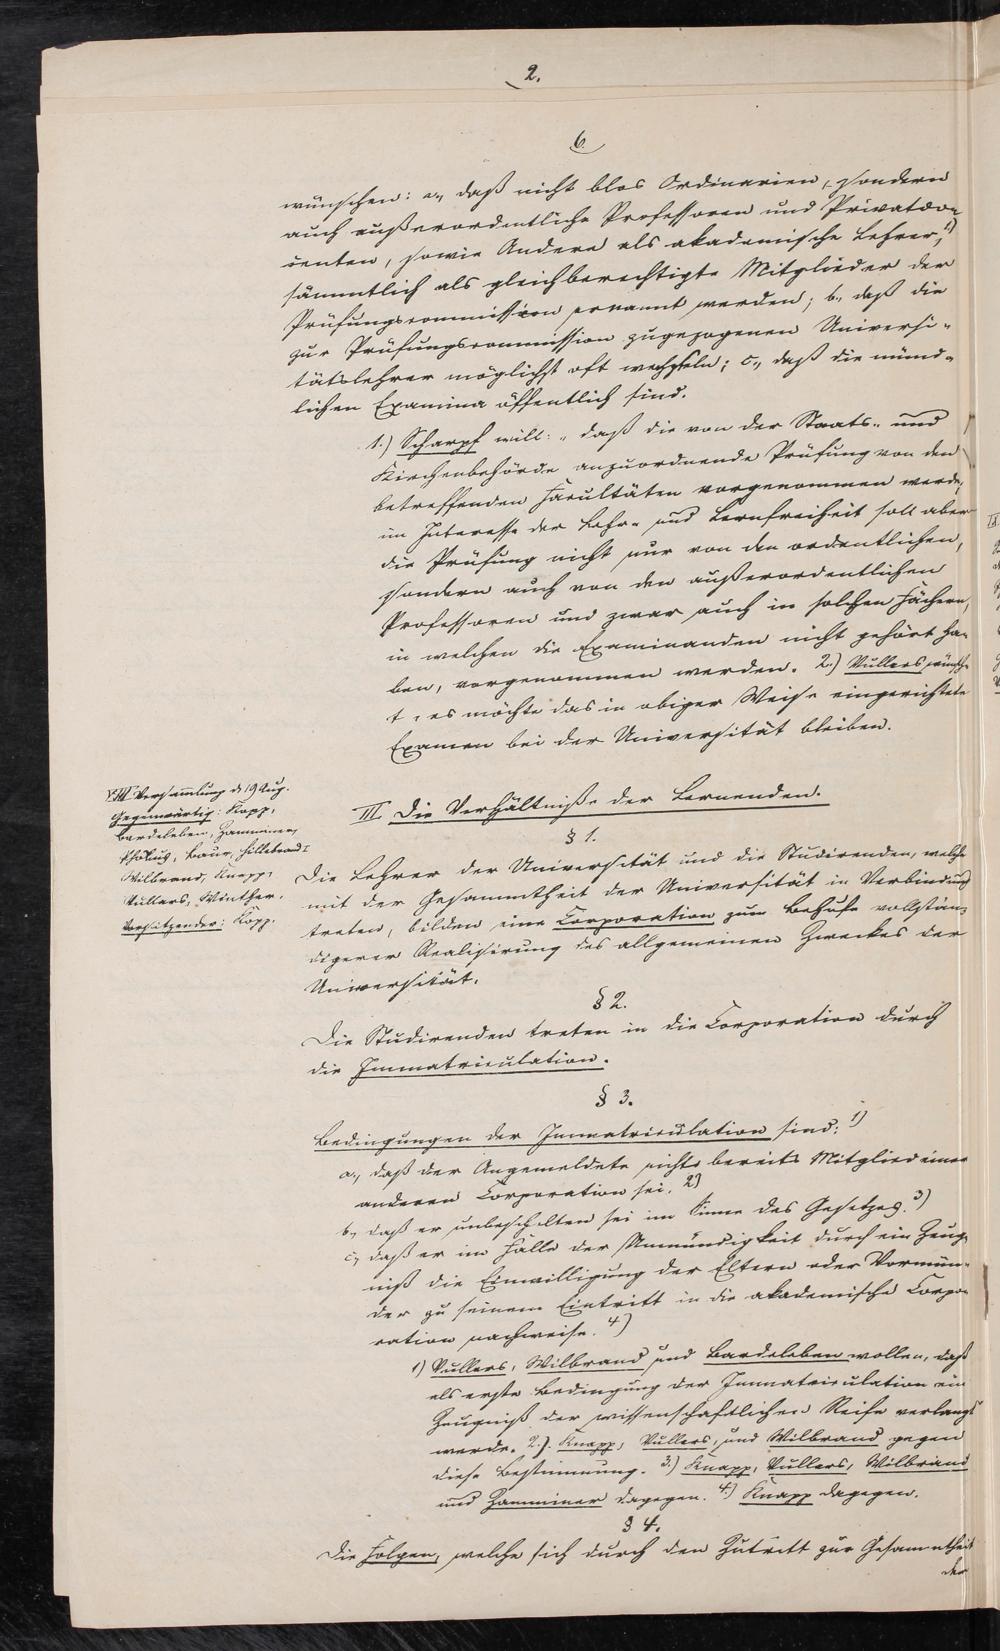 2.
6.
wünschen: a., daß nicht blos Ordinarien, sondern
auch außerordentliche Professoren und Privatdoc„
centen, sowie Andere als akademische Lehrer, 1)
sämmtlich als gleichberechtigte Mitglieder der
Prüfungscommission ernannt werden; b., daß die
zur Prüfungscommission zugezogenen Universi„
tätslehrer möglichst oft wechseln; c., daß die münd„
lichen Examina öffentlich sind.
1.) Scharpf will: „ daß die von der Staats„ und
Kirchenbehörde anzuordnende Prüfung von den
betreffenden Facultäten vorgenommen werde,
im Interesse der Lehr„ und Lernfreiheit soll aber
die Prüfung nicht nur von den ordentlichen,
sondern auch von den außerordentlichen
Professoren und zwar auch in solchen Fächern,
in welchen die Examinanden nicht gehört ha„
ben, vorgenommen werden. 2.) Vullers wünsch„
t, es möchte das in obiger Weise eingerichtete
Examen bei der Universität bleiben.
Versammlung d. 19 Aug.
Gegenwärtig: Kopp,
Bardeleben, Zamminer,
Phöbus, Baur, Hillebrand I
Wilbrand, Knapp,
Vullers, Winther.
Vorsitzender: Kopp.
III. Die Verhältniße der Lernenden.
§ 1.
Die Lehrer der Universität und die Studirenden, welche
mit der Gesammtheit der Universität in Verbindung
treten, bilden eine Corporation zum Behufe vollstän„
digerer Realisirung des allgemeinen Zweckes der
Universität.
§ 2.
Die Studirenden treten in die Corporation durch
die Immatriculation.
§ 3.
Bedingungen der Immatriculation sind: 1)
a., daß der Angemeldete nicht bereits Mitglied einer
anderen Corporation sei. 2)
b., daß er unbescholten sei im Sinne des Gesetzes. 3)
c., daß er im Falle der Unmündigkeit durch ein Zeug„
niß die Einwilligung der Eltern oder Vormün„
der zu seinem Eintritt in die akademische Corpo„
ration nachweise. 4)
1) Vullers, Wilbrand und Bardeleben wollen, daß
als erste Bedingung der Immatriculation ein
Zeugniß der wissenschaftlichen Reife verlangt
werde. 2.) Knapp, Vullers, und Wilbrand gegen
diese Bestimmung. 3.) Knapp, Vullers, Wilbrand
und Zamminer dagegen. 4.) Knapp dagegen.
§ 4.
Die Folgen, welche sich durch den Zutritt zur Gesammtheit
der